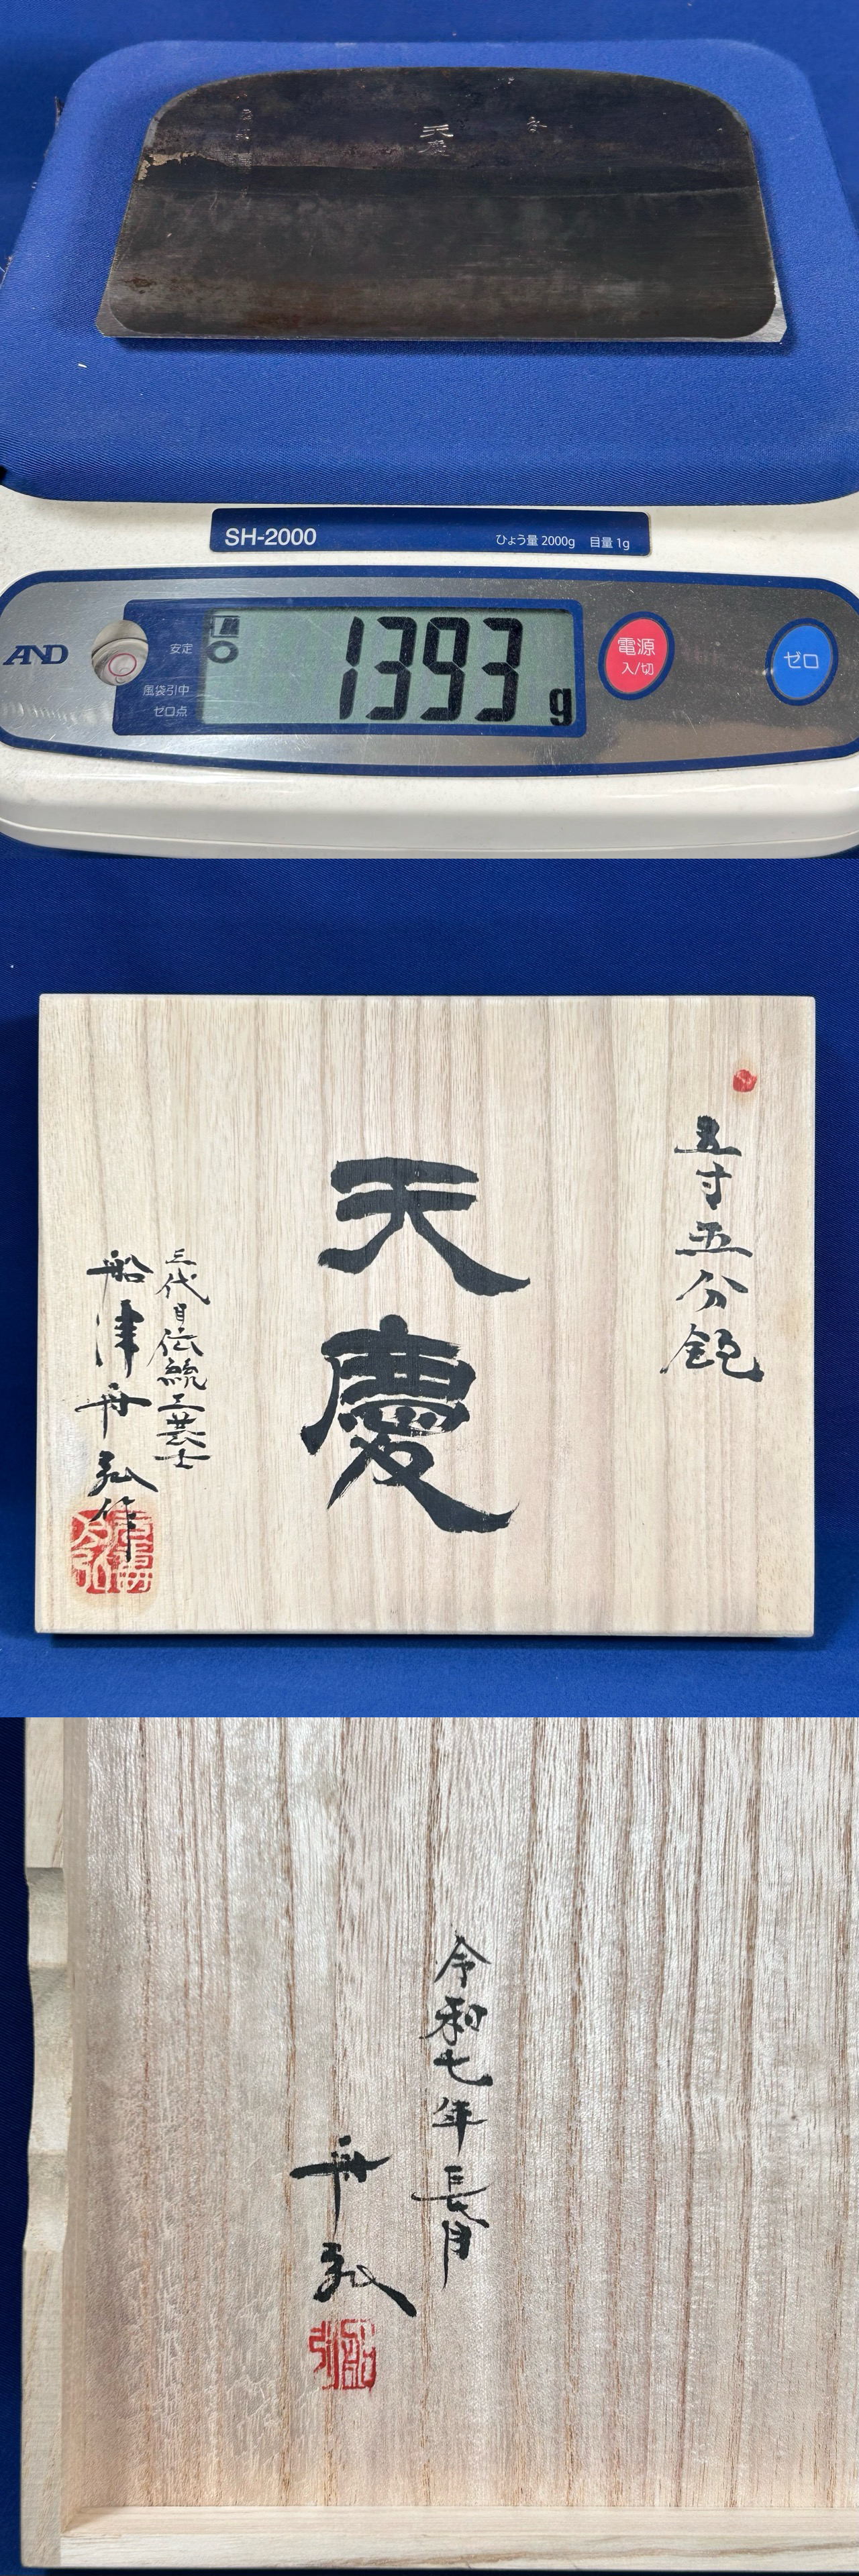 天慶
SH-2000
ひょう量 2000g 目量 1g
AND
安定
風袋引中
ゼロ点
1393 g
電源
入/切
ゼロ
五寸五分鉋
天慶
三代目伝統工芸士
船津舟弘作
令和七年長月
舟弘